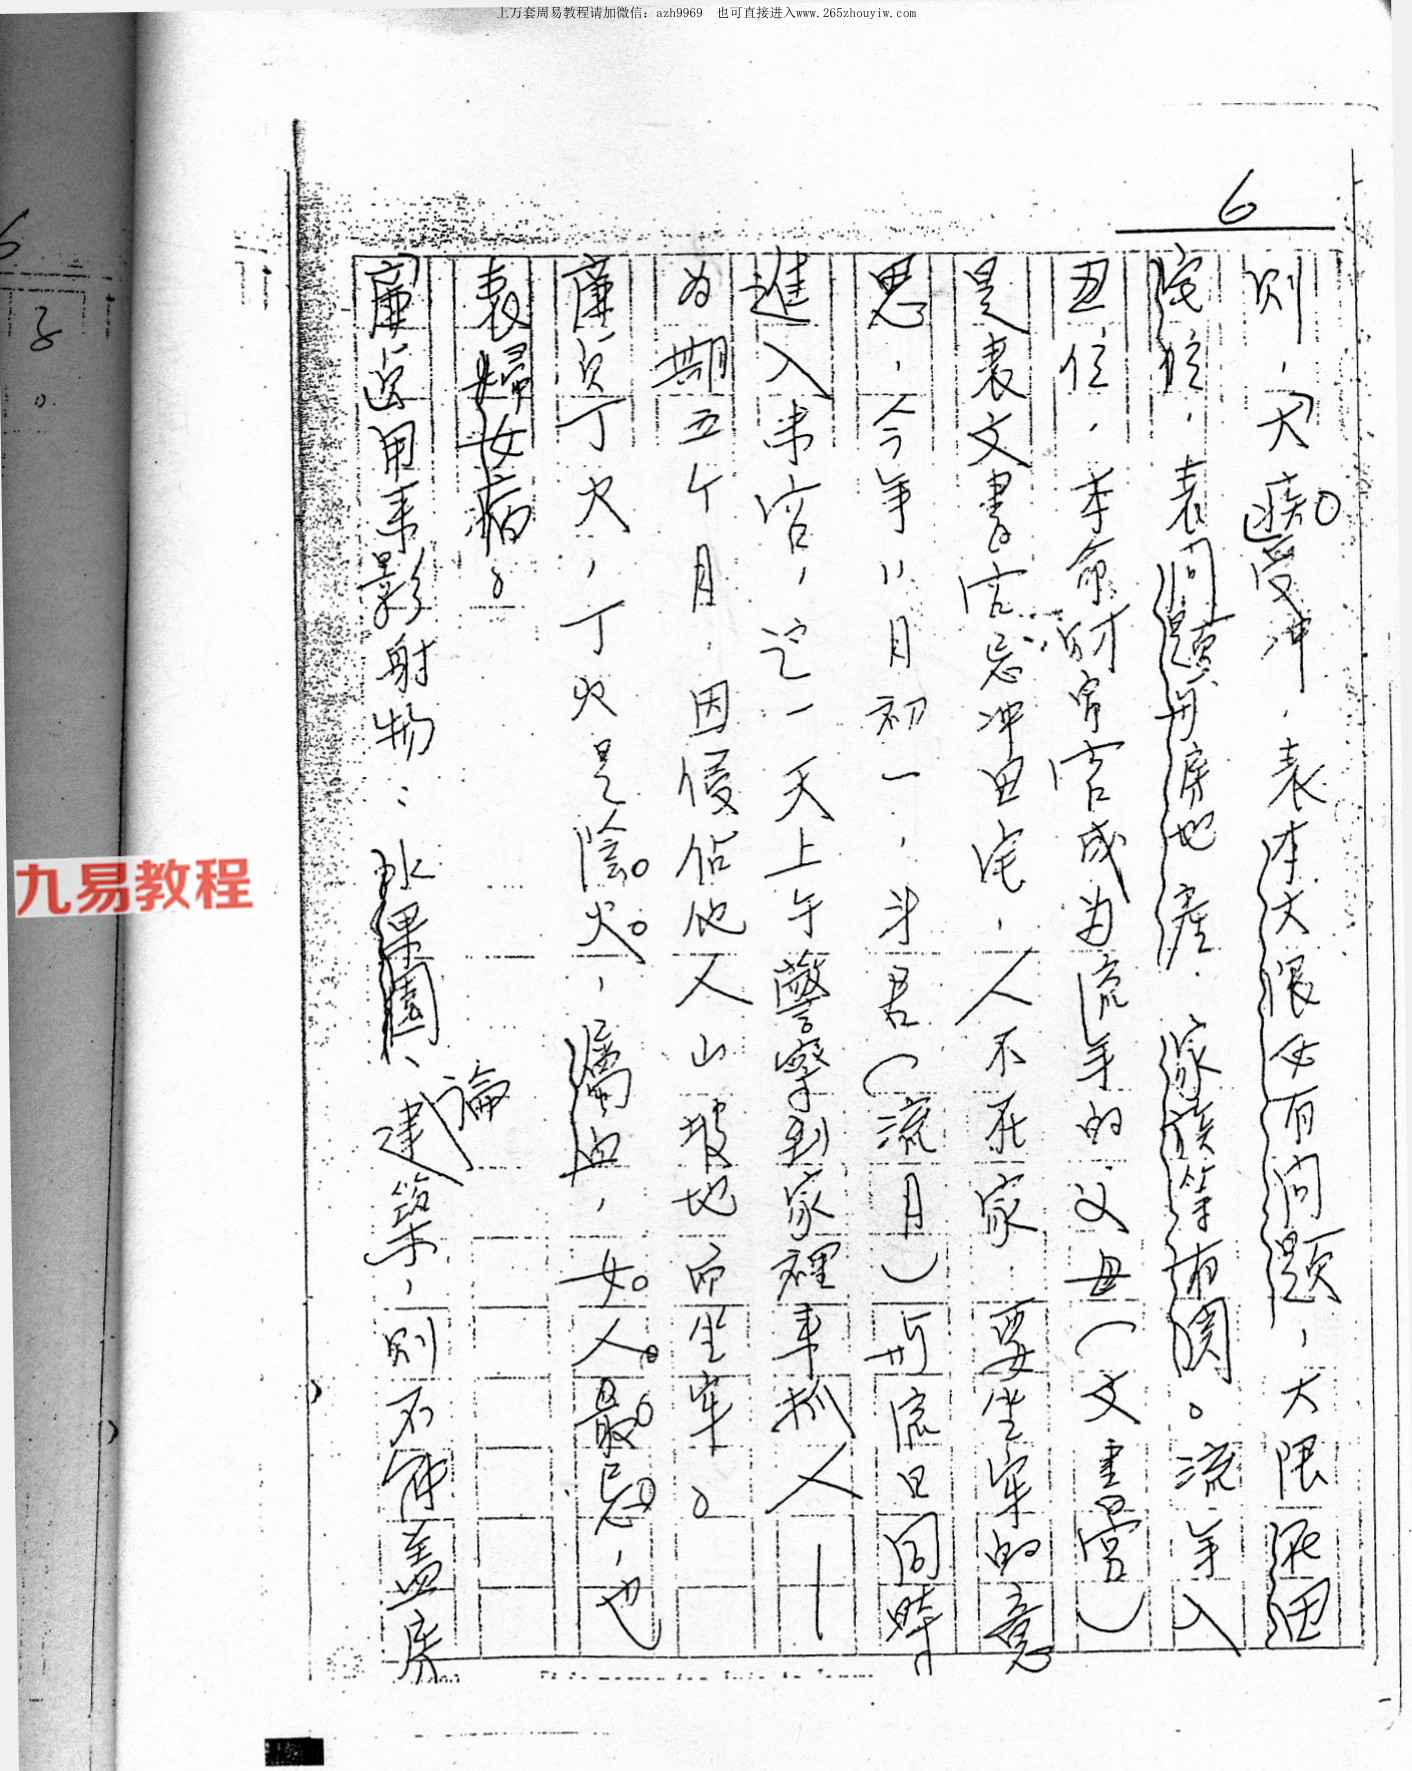 上万套周易教程请加微信：azh9969 也可直接进入www.265zhouyiw.com
6
则，大疾受冲，表本大限必有问题，大限死田
宅位，表问题与房地產，家族等有関。流年入
丑位，本命财帛宫成为流年的父母（文書宫）
是表文書宫忌冲田宅，人不在家，要坐牢的意
思，今年八月初一，斗君（流月）与流日同時
進入事宫，这一天上午警察到家裡来抓人——
为期五个月，因侵佔他人山坡地而坐牢。
廉贞丁火，丁火是陰火，属血，女人最忌，也
表婦女病。
廉 用事影射物：水果園、建築，则不能蓋房
論
九易教程
6
子
。